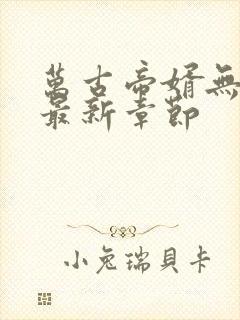 萬古帝婿無
最新章節
小兔瑞貝卡